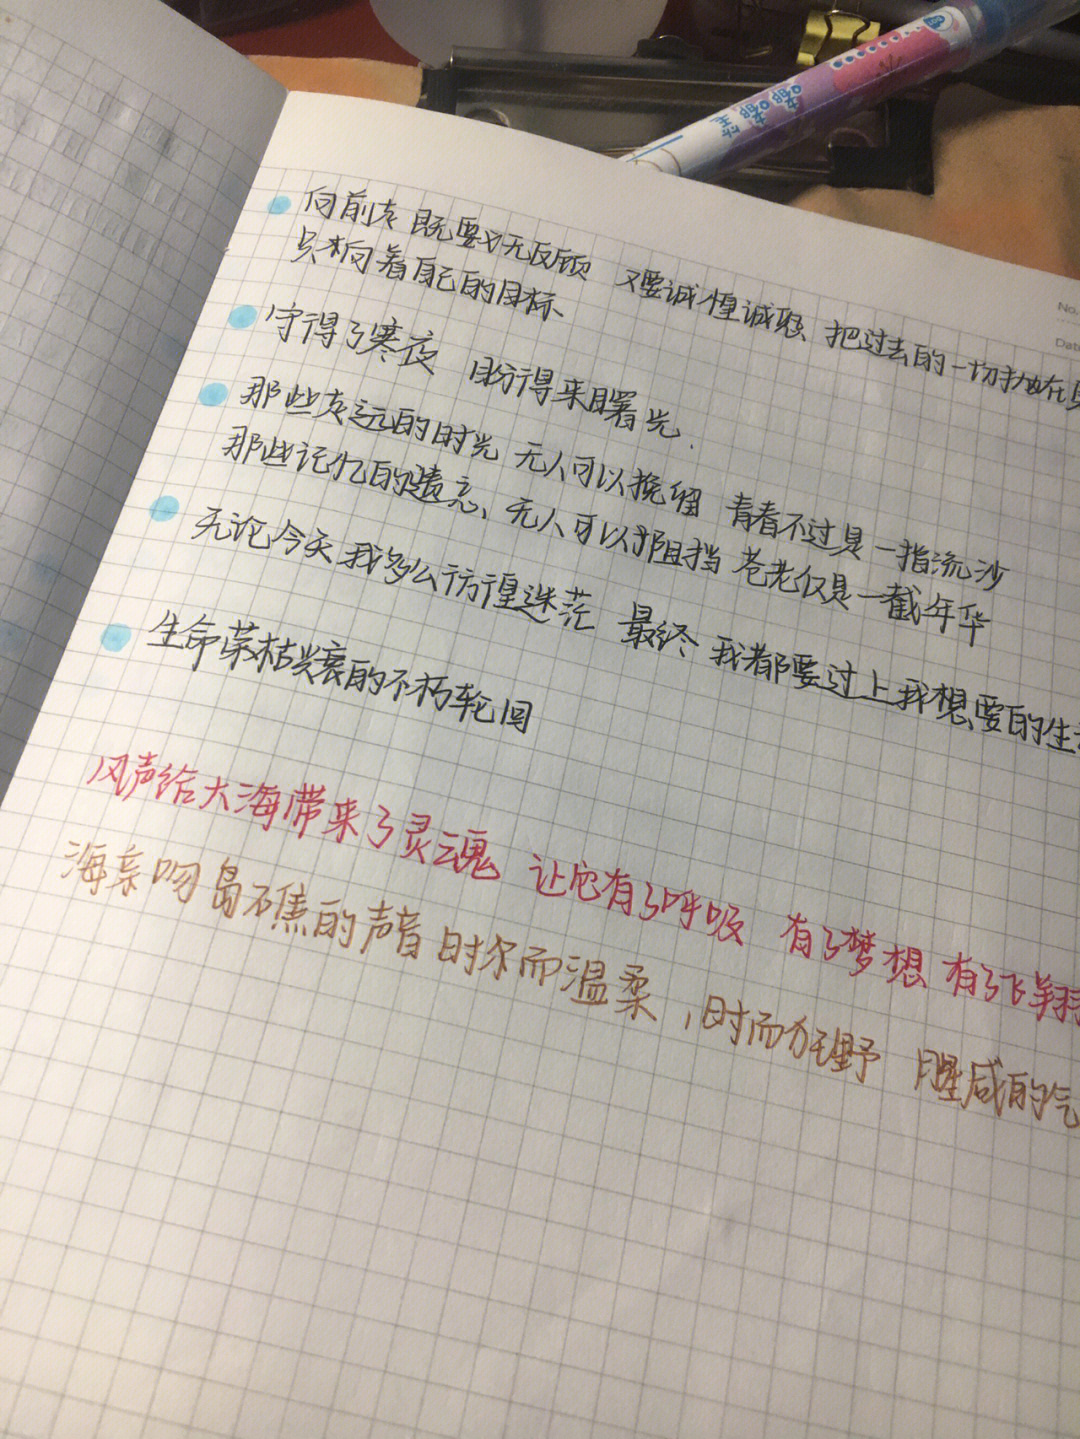 No.
Dat
向前走 既要义无反顾 又要诚惶诚恐 把过去的一切抛在
只对向着自己的目标、
守得了寒夜 盼得来曙光.
那些走远的时光 无人可以挽留 青春不过是一指流沙
那些记忆的遗忘、无人可以阻挡 苍老仅是一截年华
无论今天我多么彷徨迷茫 最终 我都要过上我想要的生
生命荣枯兴衰的不朽轮回
风声给大海带来了灵魂 让它有了呼吸 有了梦想 有了飞翔
海亲吻岛礁的声音时尔而温柔,时而狂野 腥咸的气